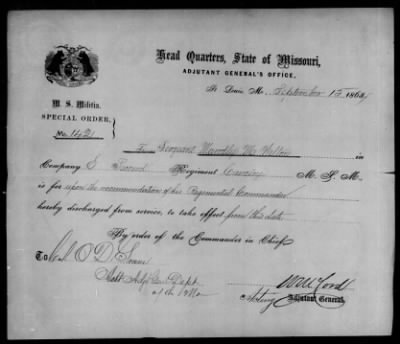 Head Quarters, State of Missouri,
ADJUTANT GENERAL'S OFFICE,
St. Louis Mo. September 15 1862
M. S. Militia.
SPECIAL ORDER,
No. 142
in
Company Second Regiment Cavalry M. S. M.
is for upon the recommendation of his Regimental Commander
hereby discharged from service, to take effect from this date.
By order of the Commander in Chief.
To Col O D
Asst Adjt Gen Dept
of the Mo
Acting Adjutant General.